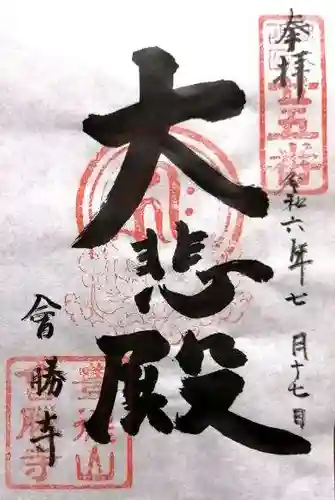 奉拝
令和六年七月十七日
大悲殿
會勝寺